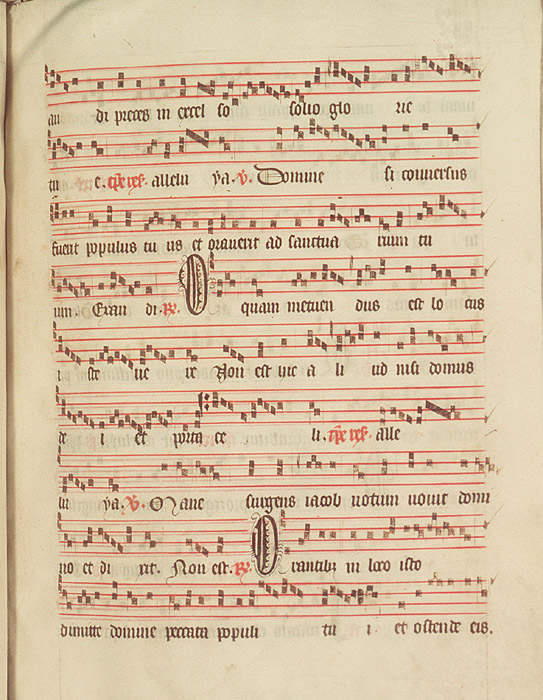 au di preces in excel so solio glo rie
tu e. tpe resr. allelu ya. v. Domine si conuersus
fuerit populus tu us et orauerit ad sanctua rium tu
um. Exau di. R. O quam metuen dus est lo cus
i ste ue re Non est hic a li ud nisi domus
de i et porta ce li. tpe resr. alle
lu ya. v. Mane surgens iacob uotum uouit domi
no et di xit. Non est. R. O rantibus in loco isto
dimitte domine peccata populi tu i. et ostende eis.